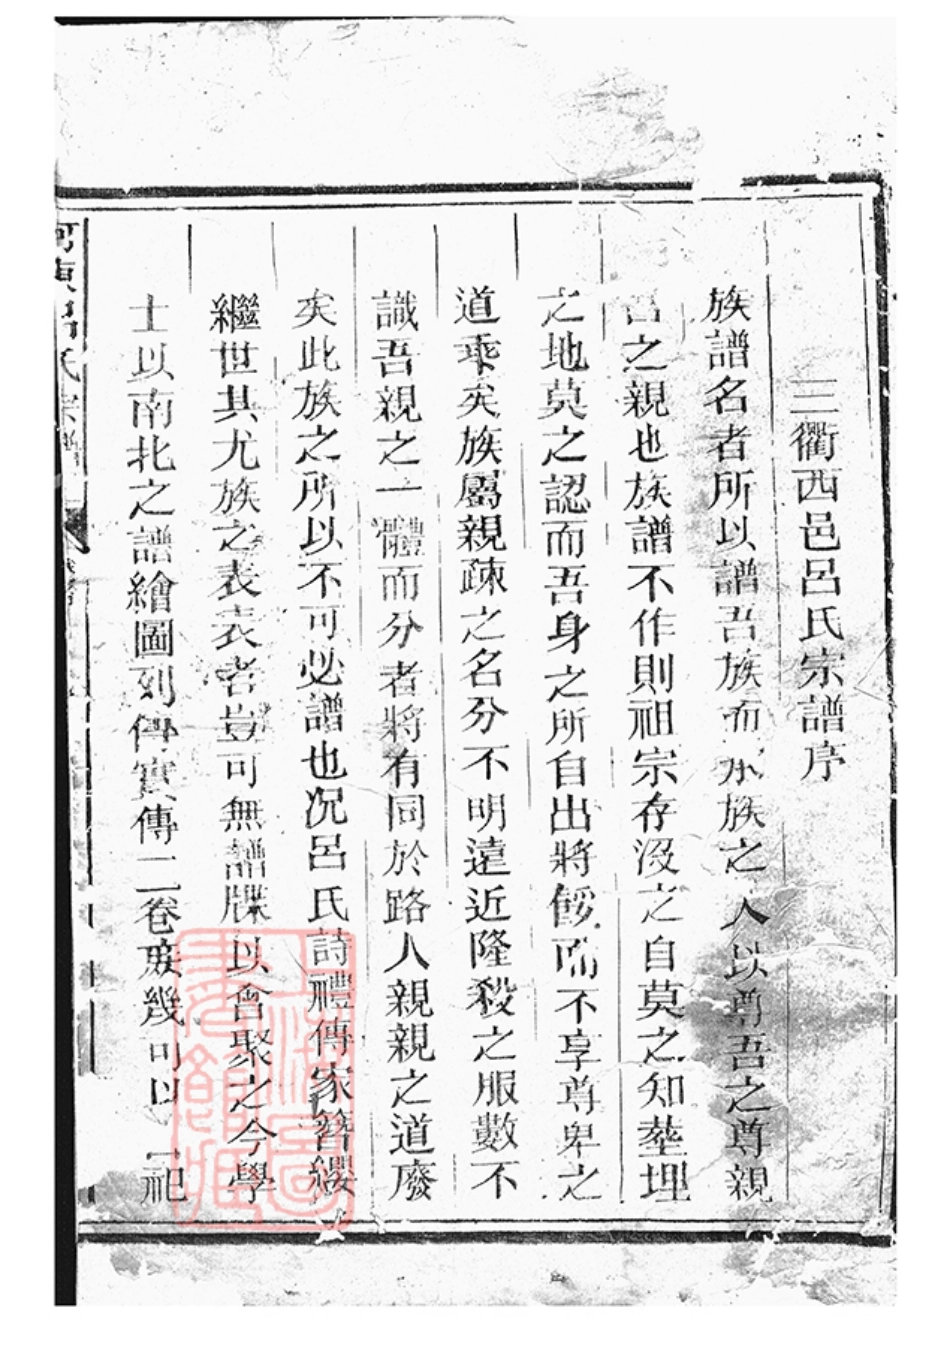 三衢西邑呂氏宗譜序
族譜名者所以譜吾族而示族之人以尊吾之尊親
吾之親也族譜不作則祖宗存没之自莫之知塟埋
之地莫之認而吾身之所自出將餒而不享尊卑之
道乖矣族屬親疎之名分不明遠近隆殺之服數不
識吾親之一體而分者將有同於路人親親之道廢
矣此族之所以不可必譜也况呂氏詩禮傳家簪纓
繼世其尤族之表表者豈可無譜牒以會聚之今學
士以南北之譜繪圖列傳實傳二卷庶幾可以祀
河東呂氏宗譜
上海圖書館藏